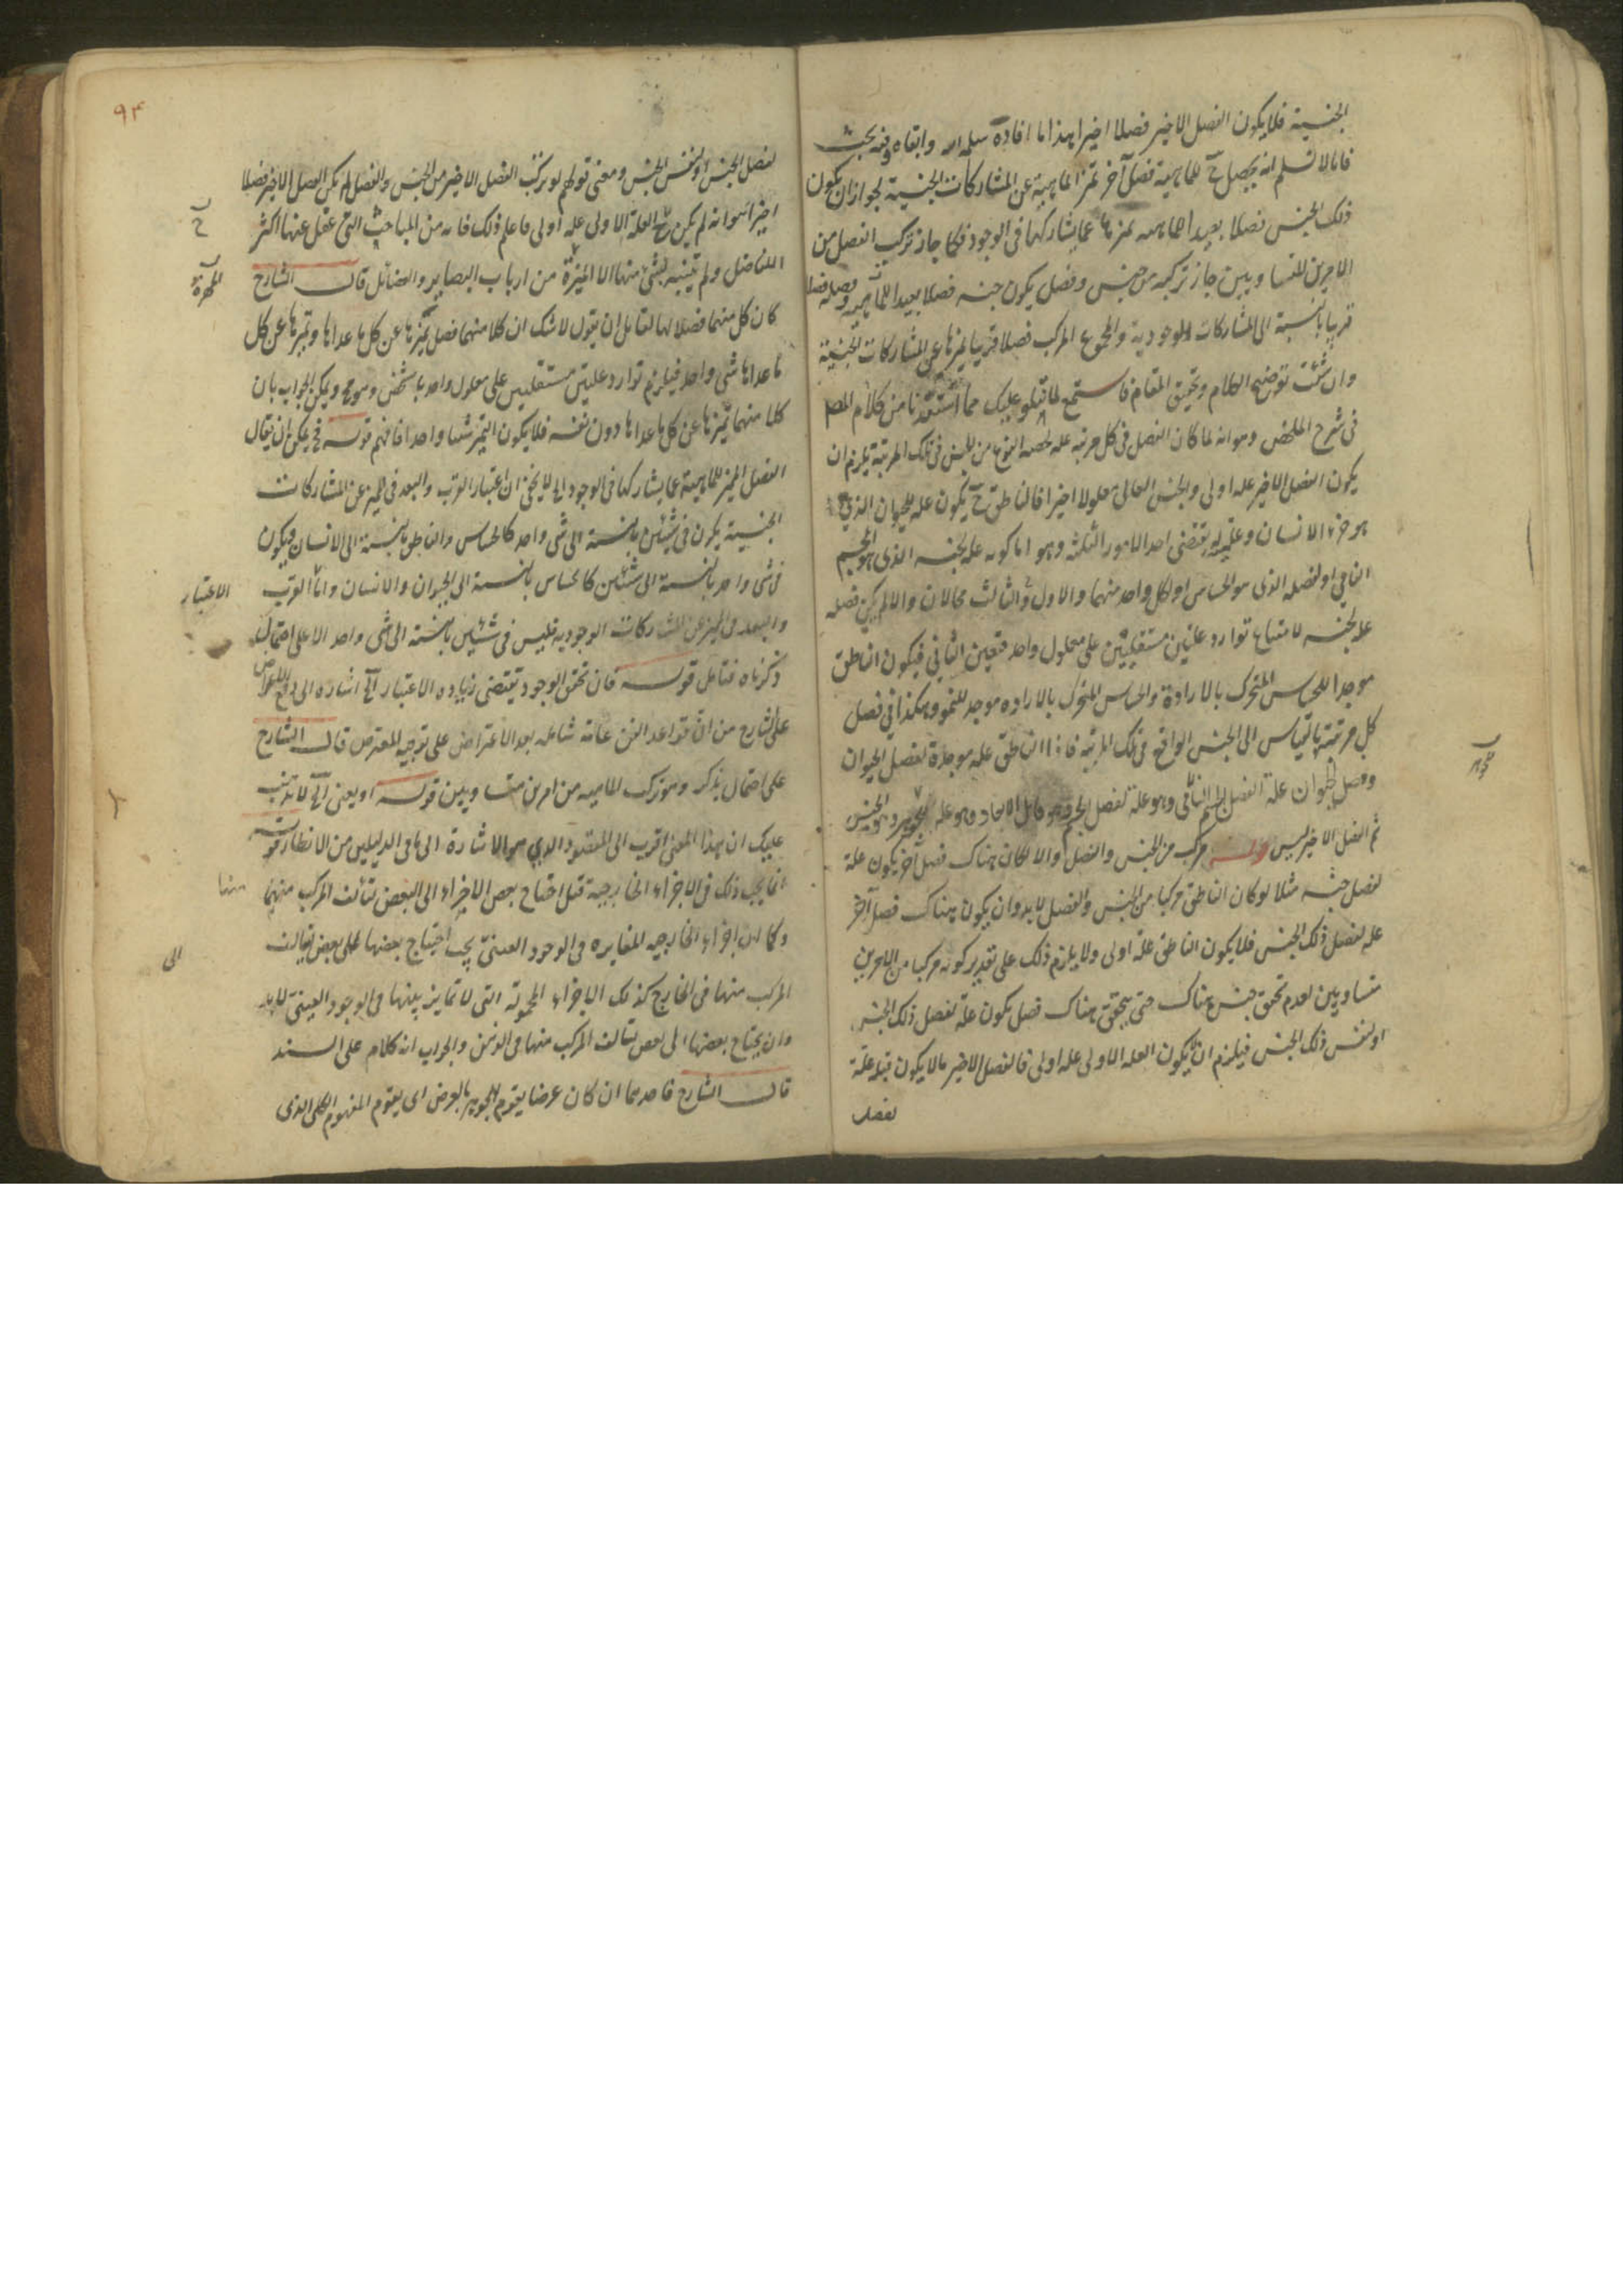 الجنسية فلا يكون الفصل الاخير فصلا اخيرا هذا ما افاده سلمه الله وابقاه وفيه بحث
فانا لا نسلم انه يحصل ح للماهية فصل آخر تميز الماهية عن المشاركات الجنسية لجواز ان يكون
ذلك الجنس فصلا بعيدا للماهية يميزها عما يشاركها فى الوجود فكما جاز تركب الفصل من
الامرين المتساويين جاز تركبه من جنس وفصل يكون جنسه فصلا بعيدا للماهية وفصله فصلا
قريبا بالنسبة الى المشاركات الوجودية والمجموع المركب فصلا قريبا يميزها عن المشاركات الجنسية
وان شئت توضيح الكلام وتحقيق المقام فاستمع لما نتلو عليك مما استفدنا من كلام المصم
فى شرح الملخص وهو انه لما كان الفصل فى كل مرتبة علة لحصة النوع من الجنس فى تلك المرتبة يلزم ان
يكون الفصل الاخير علة اولى والجنس العالى معلولا اخيرا فالناطق ح يكون علة للحيوان الذى
هو جزء الانسان وعليته يقتضى احد الامور الثلثة وهو اما كونه علة لجنسه الذى هو الجسم
النامى او لفصله الذى هو الحساس او لكل واحد منهما والاول والثالث محالان والا لم يكن فصله
علة لجنسه لامتناع توارد علتين مستقلتين على معلول واحد فتعين الثانى فيكون الناطق
موجدا للحساس المتحرك بالارادة والحساس المتحرك بالاراده موجد للنمو وهكذا فى فصل
كل مرتبة بالقياس الى الجنس الواقع فى تلك المرتبة فاذا الناطق علة موجدة لفصل الحيوان
وفصل الحيوان علة لفصل الجسم النامى وهو علة لفصل الجسم وهو قابل الابعاد وهو علة للجوهر والجنس
ثم الفصل الاخير ليس مركب من الجنس والفصل والا لكان هناك فصل آخر يكون علة
لفصل جنسه مثلا لو كان الناطق مركبا من الجنس والفصل لا بد وان يكون هناك فصل آخر
علة لفصل ذلك الجنس فلا يكون الناطق علة اولى ولا يلزم ذلك على تقدير كونه مركبا من الامرين
متساويين لعدم تحقق جنس هناك حتى يتحقق هناك فصل يكون علة لفصل ذلك الجنس
او لنفس ذلك الجنس فيلزم ان لا يكون العلة الاولى علة اولى فالفصل الاخير ما لا يكون قبله علة
لفصل
٩٤
لفصل الجنس او لنفس الجنس ومعنى قولهم لو تركب الفصل الاخير من الجنس والفصل لم يكن الفصل الاخير فصلا
اخيرا هو انه لم يكن ح العلة الاولى علة اولى فاعلم ذلك فانه من المباحث التى غفل عنها اكثر
الافاضل ولم يتنبه لشئ منها الا المهرة من ارباب البصاير والفضائل قال الشارح
كان كل منهما فصلا لها لقائل ان يقول لا شك ان كلا منهما فصل يميزها عن كل ما عداها وتميزها عن كل
ما عداها شى واحد فيلزم توارد علتين مستقلتين على معلول واحد بالشخص وهو مح ويمكن الجواب بان
كلا منهما تميزها عن كل ما عداها دون نفسه فلا يكون التميز شيئا واحدا فافهم قوله فح يمكن ان يقال
الفصل المميز للماهية عما يشاركها فى الوجود الخ لا يخفى ان اعتبار القرب والبعد فى المميز عن المشاركات
الجنسية يكون فى شيئين بالنسبة الى شى واحد كالحساس والناطق بالنسبة الى الانسان ويكون
فى شى واحد بالنسبة الى شيئين كالحساس بالنسبة الى الحيوان والانسان واما القرب الاعتبار
والبعد فى المميز عن المشاركات الوجودية فليس فى شيئين بالنسبة الى شى واحد الا على احتمال
ذكرناه فتامل قوله فان تحقق الوجود يقتضى زياده الاعتبار الخ اشاره الى دفع
على الشارح من ان قواعد الفن عامة شاملة بعد الاعتراض على توجيه المعترض قال الشارح
على احتمال يذكر وهو تركب الماهية من امرين متساويين قوله او يعنى الخ لا يذهب
عليك ان هذا المعنى اقرب الى المقصود الذى هو الاشارة الى ما فى الدليلين من الانظار قوله
انما يجب ذلك فى الاجزاء الخارجية قيل احتياج بعض الاجزاء الى البعض لتألف المركب منهما منها
وكما ان اجزاء الخارجيه المغايره فى الوجود العينى يجب احتياج بعضها الى بعض ليتالف الى
المركب منها فى الخارج كذلك الاجزاء المحمولة التى لا تمايز بينها فى الوجود العينى لا بد
وان يحتاج بعضها الى بعض ليتالف المركب منها فى الذهن والجواب انه كلام على السند
قال الشارح قاصدها ان كان عرضا يقوم الجوهر بالعرض اى يقوم المفهوم الكلى الذى